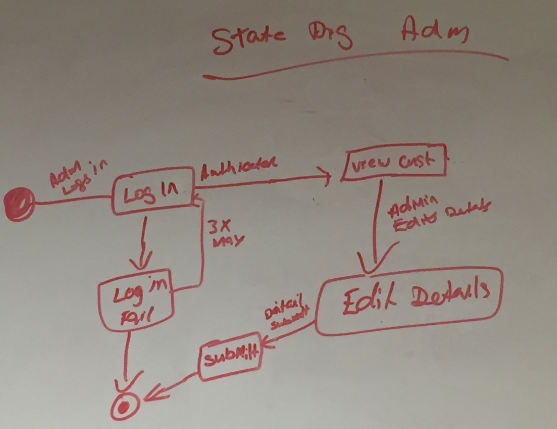 State Dig Adm
Admn
Logs in
Log In
Authicatae
View Cust
3x
Max
Admin
Edits Details
Log in
Fail
Edit Details
Detail
Submitt
Submitt